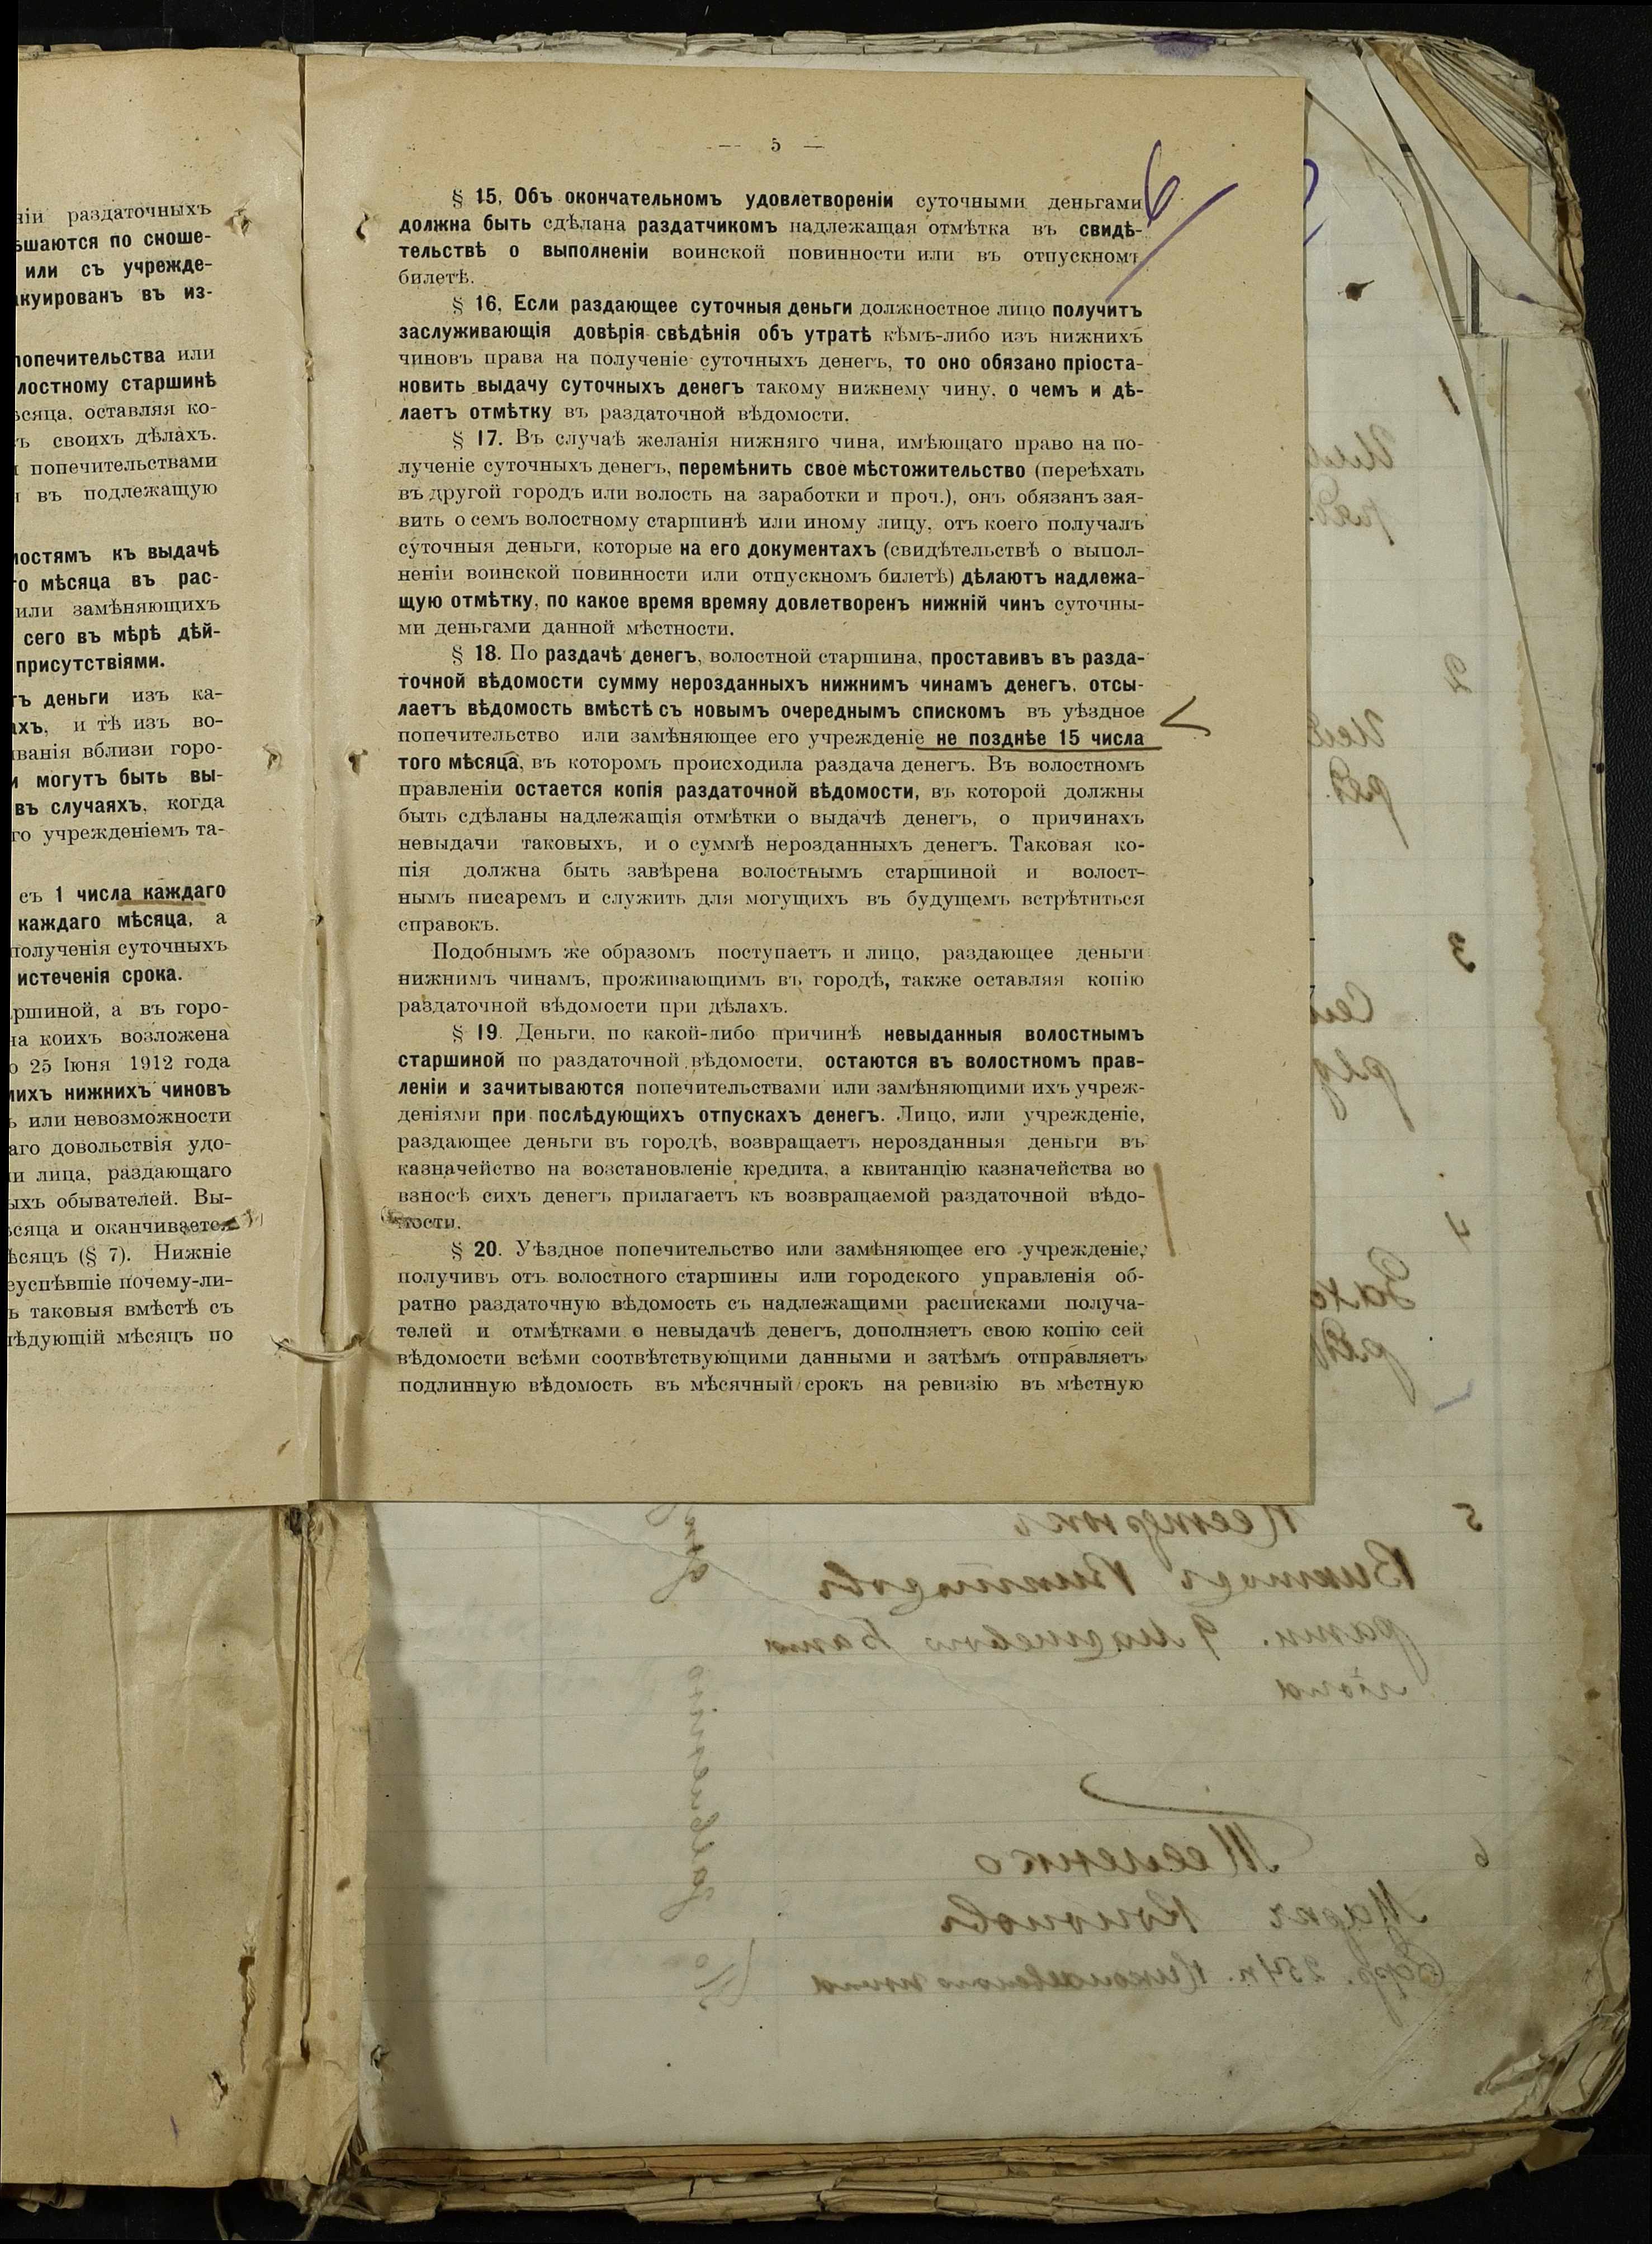 раздаточныхъ
по сноше-
или съ учрежде-
въ из-
попечительства или
старшинѣ
оставляя ко-
своихъ дѣлахъ.
попечительствами
въ подлежащую
къ выдачѣ
мѣсяца въ рас-
или замѣняющихъ
сего въ мѣрѣ дѣй-
присутствіями.
деньги изъ ка-
и тѣ изъ во-
вблизи горо-
могутъ быть вы-
въ случаяхъ, когда
учрежденіемъ та-
съ 1 числа каждаго
каждаго мѣсяца, а
полученія суточныхъ
истеченія срока.
а въ горо-
коихъ возложена
25 Іюня 1912 года
нижнихъ чиновъ
или невозможности
довольствія удо-
лица, раздающаго
обывателей. Вы-
и оканчивается
(§ 7). Нижніе
почему-ли-
таковыя вмѣстѣ съ
мѣсяцъ по
— 5 —
6
§ 15. Объ окончательномъ удовлетвореніи суточными деньгами
должна быть сдѣлана раздатчикомъ надлежащая отмѣтка въ свидѣ-
тельствѣ о выполненіи воинской повинности или въ отпускномъ
билетѣ.
§ 16. Если раздающее суточныя деньги должностное лицо получитъ
заслуживающія довѣрія свѣдѣнія объ утратѣ кѣмъ-либо изъ нижнихъ
чиновъ права на полученіе суточныхъ денегъ, то оно обязано пріоста-
новить выдачу суточныхъ денегъ такому нижнему чину, о чемъ и дѣ-
лаетъ отмѣтку въ раздаточной вѣдомости.
§ 17. Въ случаѣ желанія нижняго чина, имѣющаго право на по-
лученіе суточныхъ денегъ, перемѣнить свое мѣстожительство (переѣхать
въ другой городъ или волость на заработки и проч.), онъ обязанъ зая-
вить о семъ волостному старшинѣ или иному лицу, отъ коего получалъ
суточныя деньги, которые на его документахъ (свидѣтельствѣ о выпол-
неніи воинской повинности или отпускномъ билетѣ) дѣлаютъ надлежа-
щую отмѣтку, по какое время времяу довлетворенъ нижній чинъ суточны-
ми деньгами данной мѣстности.
§ 18. По раздачѣ денегъ, волостной старшина, проставивъ въ разда-
точной вѣдомости сумму нерозданныхъ нижнимъ чинамъ денегъ, отсы-
лаетъ вѣдомость вмѣстѣ съ новымъ очереднымъ спискомъ въ уѣздное
попечительство или замѣняющее его учрежденіе не позднѣе 15 числа
того мѣсяца, въ которомъ происходила раздача денегъ. Въ волостномъ
правленіи остается копія раздаточной вѣдомости, въ которой должны
быть сдѣланы надлежащія отмѣтки о выдачѣ денегъ, о причинахъ
невыдачи таковыхъ, и о суммѣ нерозданныхъ денегъ. Таковая ко-
пія должна быть завѣрена волостнымъ старшиной и волост-
нымъ писаремъ и служить для могущихъ въ будущемъ встрѣтиться
справокъ.
Подобнымъ же образомъ поступаетъ и лицо, раздающее деньги
нижнимъ чинамъ, проживающимъ въ городѣ, также оставляя копію
раздаточной вѣдомости при дѣлахъ.
§ 19. Деньги, по какой-либо причинѣ невыданныя волостнымъ
старшиной по раздаточной вѣдомости, остаются въ волостномъ прав-
леніи и зачитываются попечительствами или замѣняющими ихъ учреж-
деніями при послѣдующихъ отпускахъ денегъ. Лицо, или учрежденіе,
раздающее деньги въ городѣ, возвращаетъ нерозданныя деньги въ
казначейство на возстановленіе кредита, а квитанцію казначейства во
взносѣ сихъ денегъ прилагаетъ къ возвращаемой раздаточной вѣдо-
мости.
§ 20. Уѣздное попечительство или замѣняющее его учрежденіе,
получивъ отъ волостного старшины или городского управленія об-
ратно раздаточную вѣдомость съ надлежащими расписками получа-
телей и отмѣтками о невыдачѣ денегъ, дополняетъ свою копію сей
вѣдомости всѣми соотвѣтствующими данными и затѣмъ отправляетъ
подлинную вѣдомость въ мѣсячный срокъ на ревизію въ мѣстную
1
2
3
4
5
6